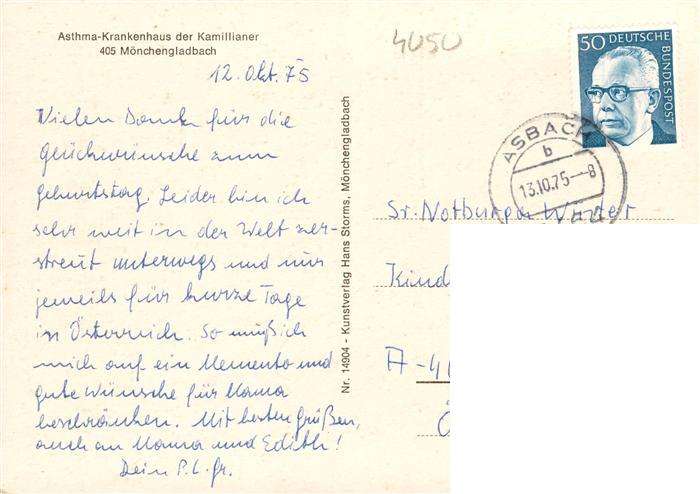 Asthma-Krankenhaus der Kamillianer
405 Mönchengladbach
4050
12. Okt. 75
Vielen Dank für die
Glückwünsche zum
Geburtstag. Leider bin ich
sehr weit in der Welt zer-
streut unterwegs und nur
jeweils für kurze Tage
in Österreich. So muß ich
mich auf ein Memento und
gute Wünsche für Mama
beschränken. Mit besten Grüßen,
auch an Mama und Edith!
Dein P.L.Gr.
Nr. 14904 - Kunstverlag Hans Storms, Mönchengladbach
50 DEUTSCHE
BUNDESPOST
ASBACH
b
13.10.75-8
Sr. Notburga
Kind
A-41
Ö